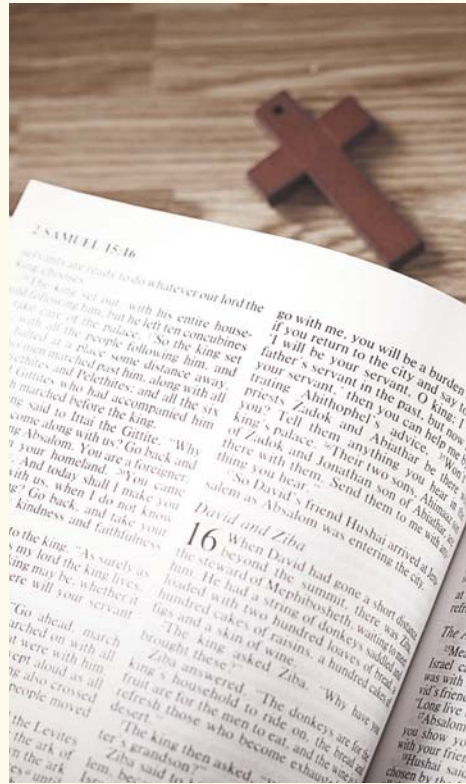 2 SAMUEL 15:16
servants are ready to do whatever our lord the
king chooses."
The king set out, with his entire house-
hold following him; but he left ten concubines
take care of the palace. So the king set
with all the people following him, and
halted at a place some distance away.
men marched past him, along with all
and Pelethites; and all the six
Gittites who had accompanied him
marched before the king.
said to Ittai the Gittite, "Why
come along with us? Go back and
Absalom. You are a foreigner,
your homeland. You came
And today shall I make you
with us, when I do not know
Go back, and take your
kindness and faithfulness
to the king, "As surely as
my lord the king lives,
king may be, whether it
there will your servant
"Go ahead, march
marched on with all
that were with him.
wept aloud as all
also crossed
people moved
the Levites
the ark of
the ark of
until
go with me, you will be a burden
if you return to the city and say
'I will be your servant, O king; I
father's servant in the past, but now
your servant,' then you can help me
trating Ahithophel's advice. Won't
priests Zadok and Abiathar be there
you? Tell them anything you hear
king's palace. Their two sons, Ahimaaz
of Zadok and Jonathan son of Abiathar
there with them. Send them to me with
thing you hear."
So David's friend Hushai arrived at Jeru-
salem as Absalom was entering the city.
David and Ziba
16 When David had gone a short distance
beyond the summit, there was Ziba,
the steward of Mephibosheth, waiting to meet
him. He had a string of donkeys saddled and
loaded with two hundred loaves of bread,
hundred cakes of raisins, a hundred cakes of
figs and a skin of wine.
The king asked Ziba, "Why have you
brought these?"
Ziba answered, "The donkeys are for the
king's household to ride on, the bread and
fruit are for the men to eat, and the wine
refresh those who become exhausted
desert."
The king then asked,
ter's grandson?"
Ziba said to
lem, because
The
Israel
was with
vid's friend
"Long live
Absalom
you show
with your friend
Hushai
chosen by the